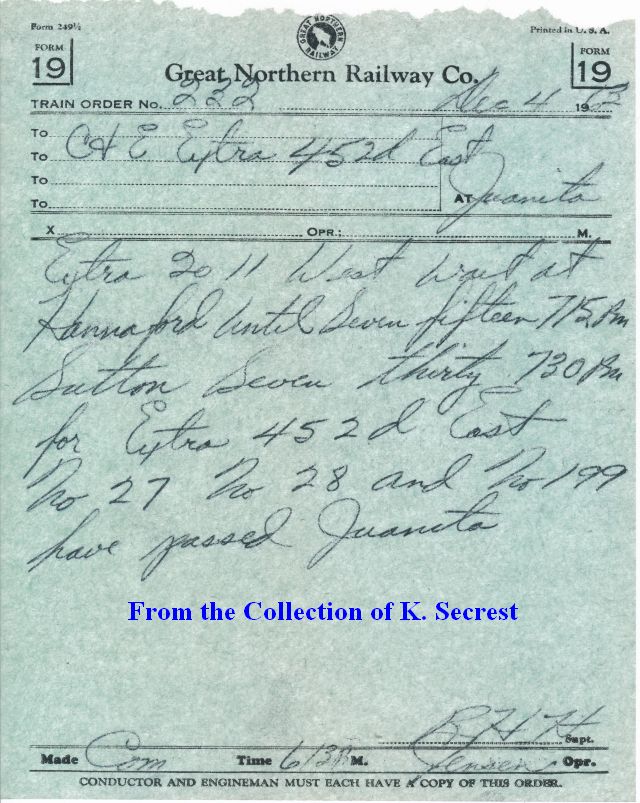 Form 249½
Printed in U. S. A.
FORM
19
GREAT NORTHERN RAILWAY
FORM
19
Great Northern Railway Co.
TRAIN ORDER No. 222 Dec 4 1962
To
To C&E Extra 452d East
To
To
AT Juanita
X OPR.: M.
Extra 2011 West wait at
Hannaford until Seven fifteen 715 Pm
Sutton Seven thirty 730 Pm
for Extra 452d East
No 27 No 28 and No 199
have passed Juanita
From the Collection of K. Secrest
B H H Supt.
Made Com Time 613 P M. Jensen Opr.
CONDUCTOR AND ENGINEMAN MUST EACH HAVE A COPY OF THIS ORDER.